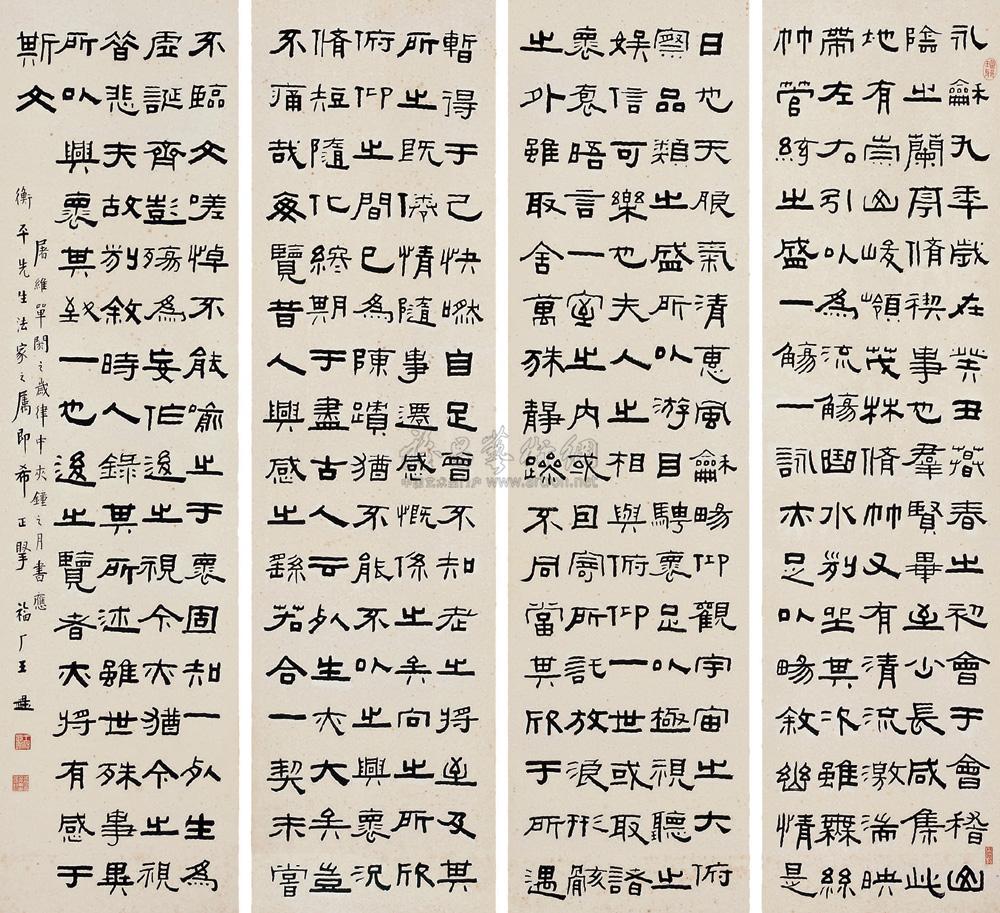 永龢九年歲在癸丑暮春之初會于會稽山
陰之蘭亭脩禊事也羣賢畢至少長咸集此
地有崇山峻領茂林脩竹又有清流激湍映
帶左右引以為流觴曲水列坐其次雖無絲
竹管絃之盛一觴一詠亦足以暢敘幽情是
日也天朗氣清惠風龢暢仰觀宇宙之大俯
察品類之盛所以游目騁懷足以極視聽之
娛信可樂也夫人之相與俯仰一世或取諸
懷抱晤言一室之內或因寄所託放浪形骸
之外雖取舍萬殊靜躁不同當其欣于所遇
暫得于己快然自足曾不知老之將至及其
所之既倦情隨事遷感慨係之矣向之所欣
俯仰之間已為陳蹟猶不能不以之興懷況
脩短隨化終期于盡古人云死生亦大矣豈
不痛哉每覽昔人興感之繇若合一契未嘗
不臨文嗟悼不能喻之于懷固知一死生為
虛誕齊彭殤為妄作後之視今亦猶今之視
昔悲夫故列敘時人錄其所述雖世殊事異
所以興懷其致一也後之覽者亦將有感于
斯文
屠維單閼之歲律中夾鐘之月書應
衡平先生法家之屬即希正掔 福厂王禔
雅昌藝術網